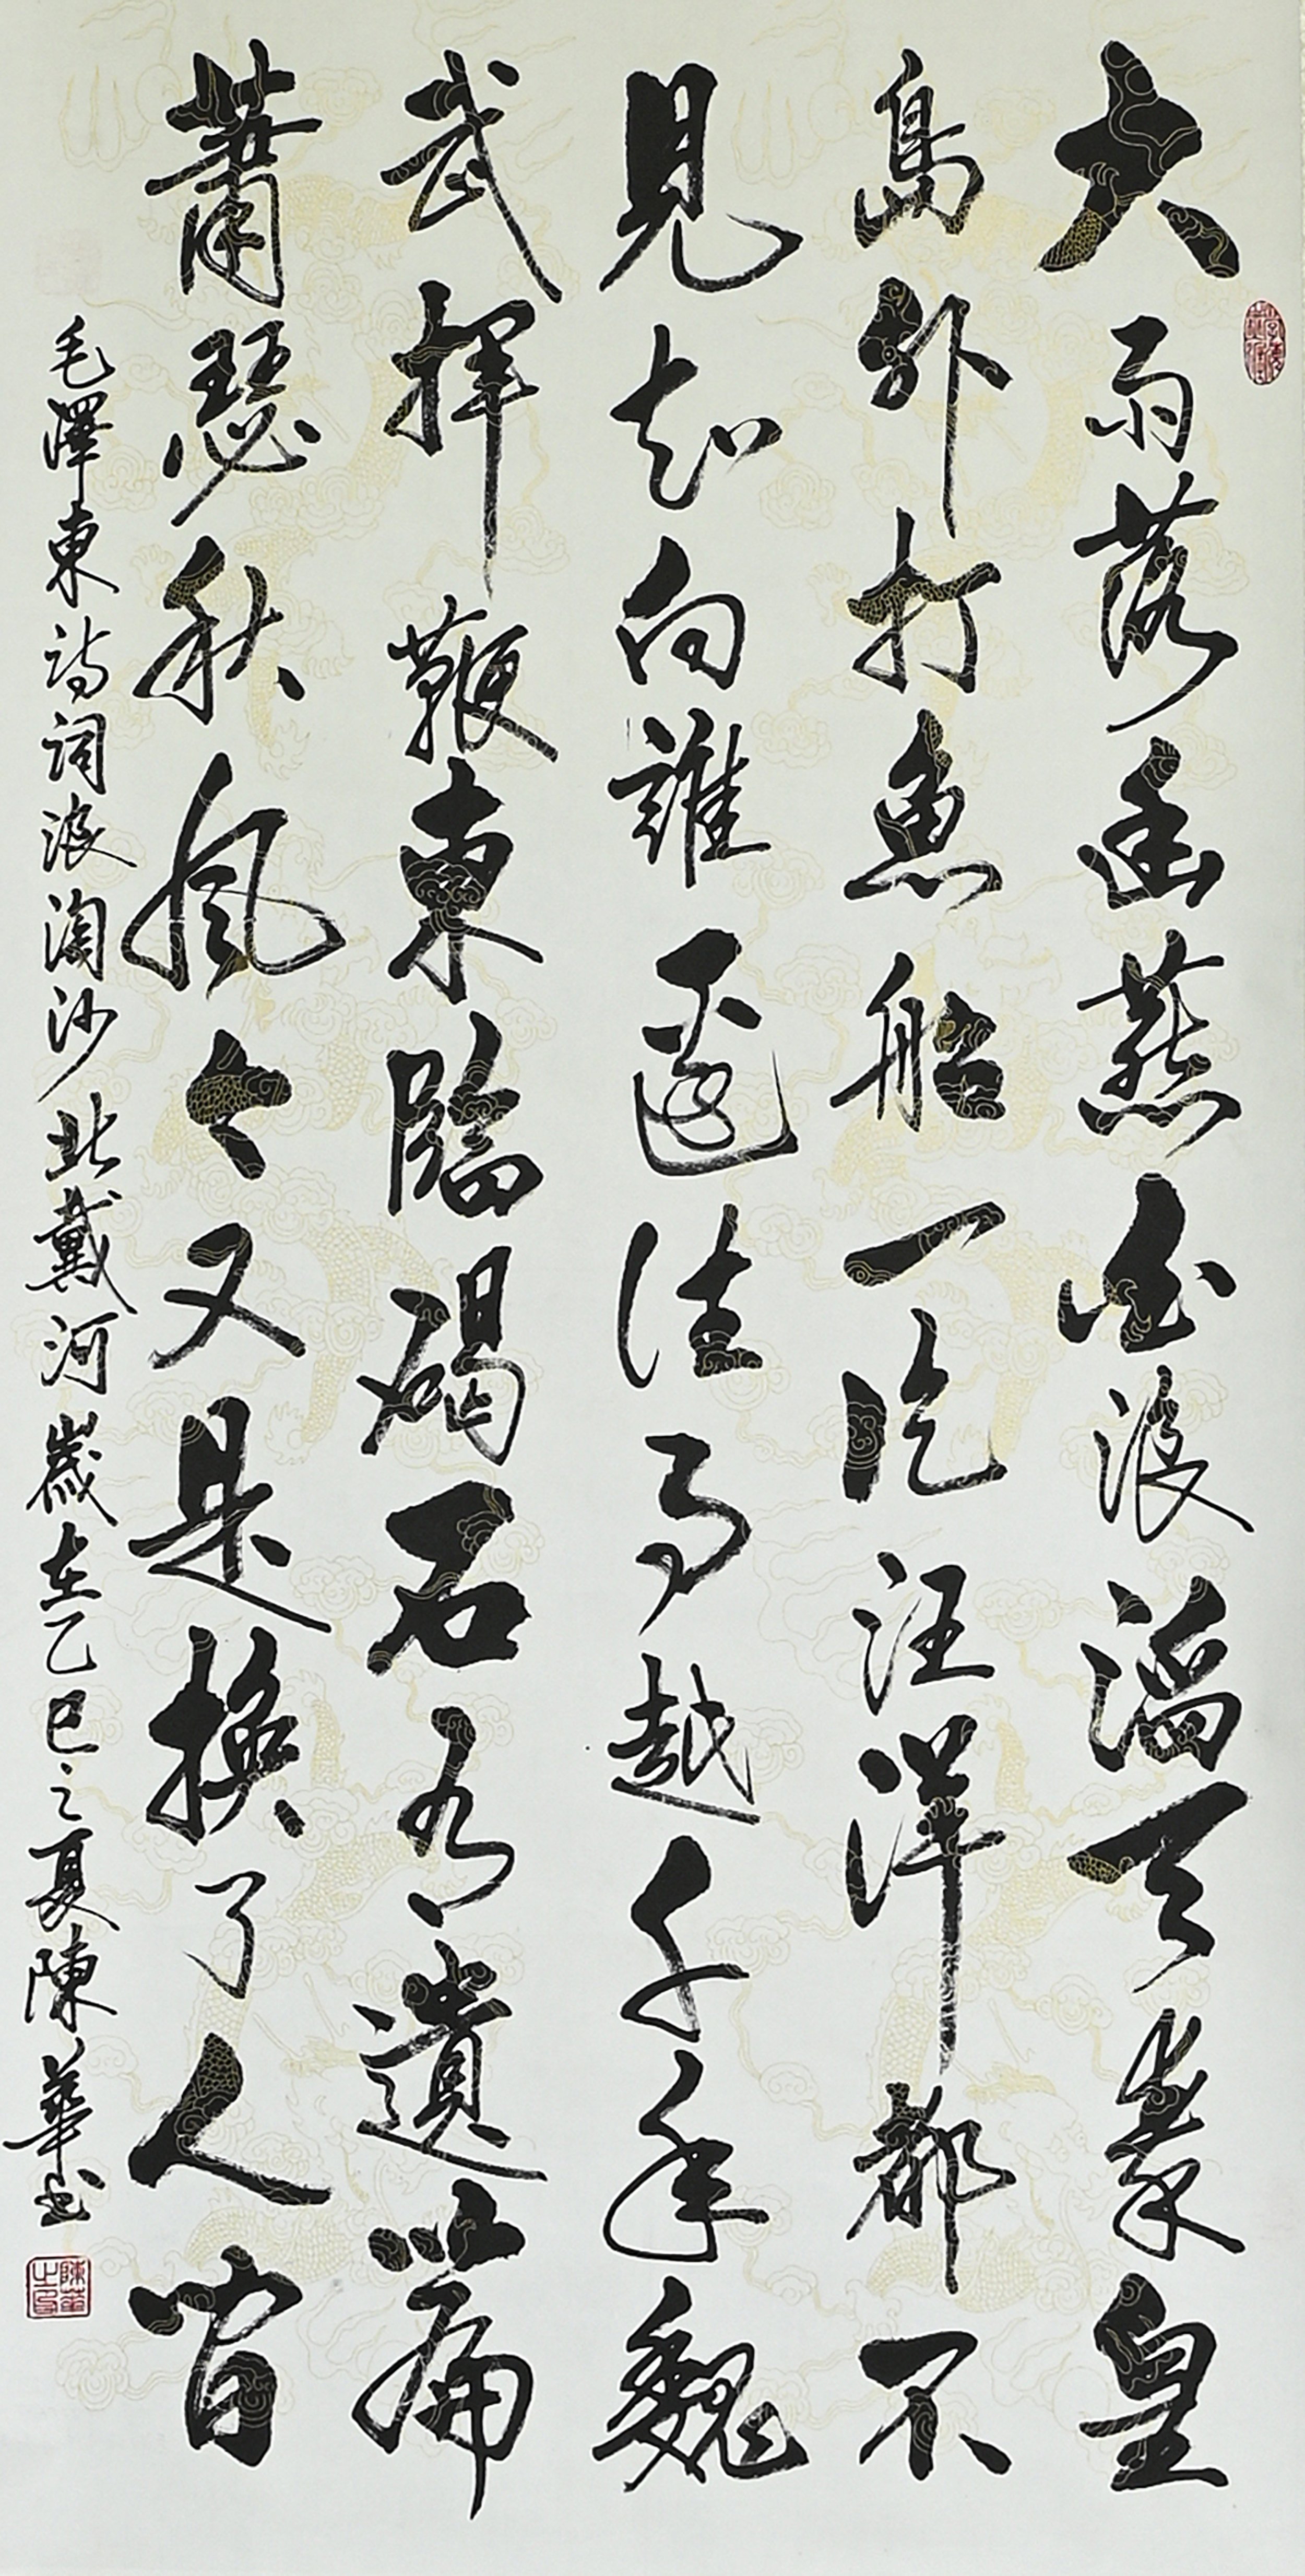 大雨落幽燕白浪滔天秦皇
島外打魚船一片汪洋都不
見知向誰邊往事越千年魏
武揮鞭東臨碣石有遺篇
蕭瑟秋風今又是換了人間
毛澤東詩詞浪淘沙北戴河歲在乙巳之夏陳華書
陳華之印